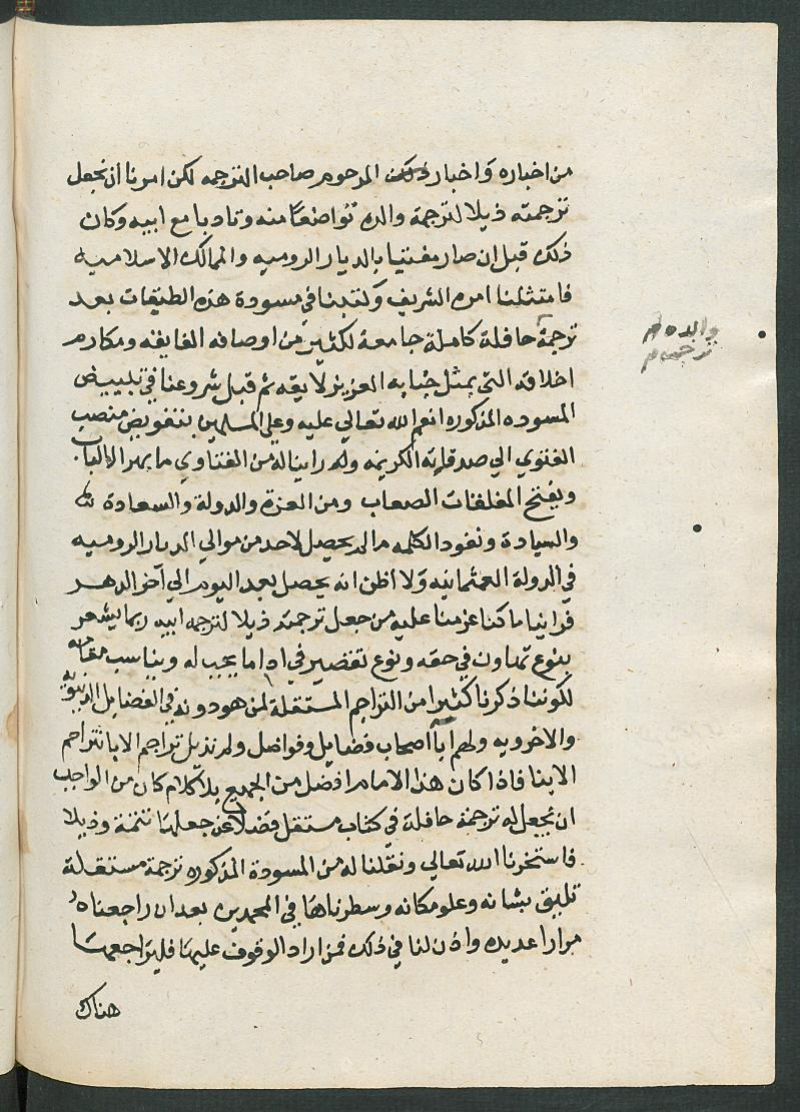 من اخباره واخبار ولده المرحوم صاحب الترجمه لكن امرنا ان نجعل
ترجمته ذيلا لترجمة والده تواضعا منه وتادبا مع ابيه وكان
ذلك قبل ان صار مفتيا بالديار الروميه والممالك الاسلاميه
فامتثلنا امره الشريف وكتبنا في مسودة هذه الطبقات بعد
ترجمة حافلة كاملة جامعة لكثير من اوصافه الفايقه ومكارم
والده
اخلاقه التي بمثل جنابه العزيز لايقه ثم قبل شروعنا في تبييض
المسوده المذكوره انعم الله تعالي عليه وعلي المسلمين بتفويض منصب
الفتوي الي صدقاته الكريمه وله راينا له من الفتاوي ما بهر الالباب
ويفتح المغلقات الصعاب ومن العزه والدولة والسعادة
والسيادة ونفود الكلمه مالم يحصل لاحد من موالي الديار الروميه
في الدولة العثمانيه ولا أظن انه يحصل بعد اليوم الي آخر الدهر
فراينا ما كنا عزمنا عليه من جعل ترجمته ذيلا لترجمه ابيه ربما يشعر
بنوع تهاون في حقه ونوع تقصير في اداما يجب له ويناسب مقامه
لكوننا ذكرنا كثيرا من التراجم المستقلة لمن هو دونه في الفضايل الدنيويه
والاخرويه ولهم ابآ اصحاب فضايل وفواضل ولم نذيل تراجم الابا بتراجم
الابنا فاذا كان هذا الامام افضل من الجميع بلا كلام كان من الواجب
ان نجعل له ترجمة حافلة في كتاب مستقل فضلا عن جعلها تتمة وذيلا
فاستخرنا الله تعالي ونقلنا له من المسودة المذكوره ترجمة مستقلة
تليق بشانه وعلو مكانه وسطرناها في المحمدين بعد ان راجعناه
مرارا عديده واذن لنا في ذلك فمن اراد الوقوف عليها فليراجعها
هناك